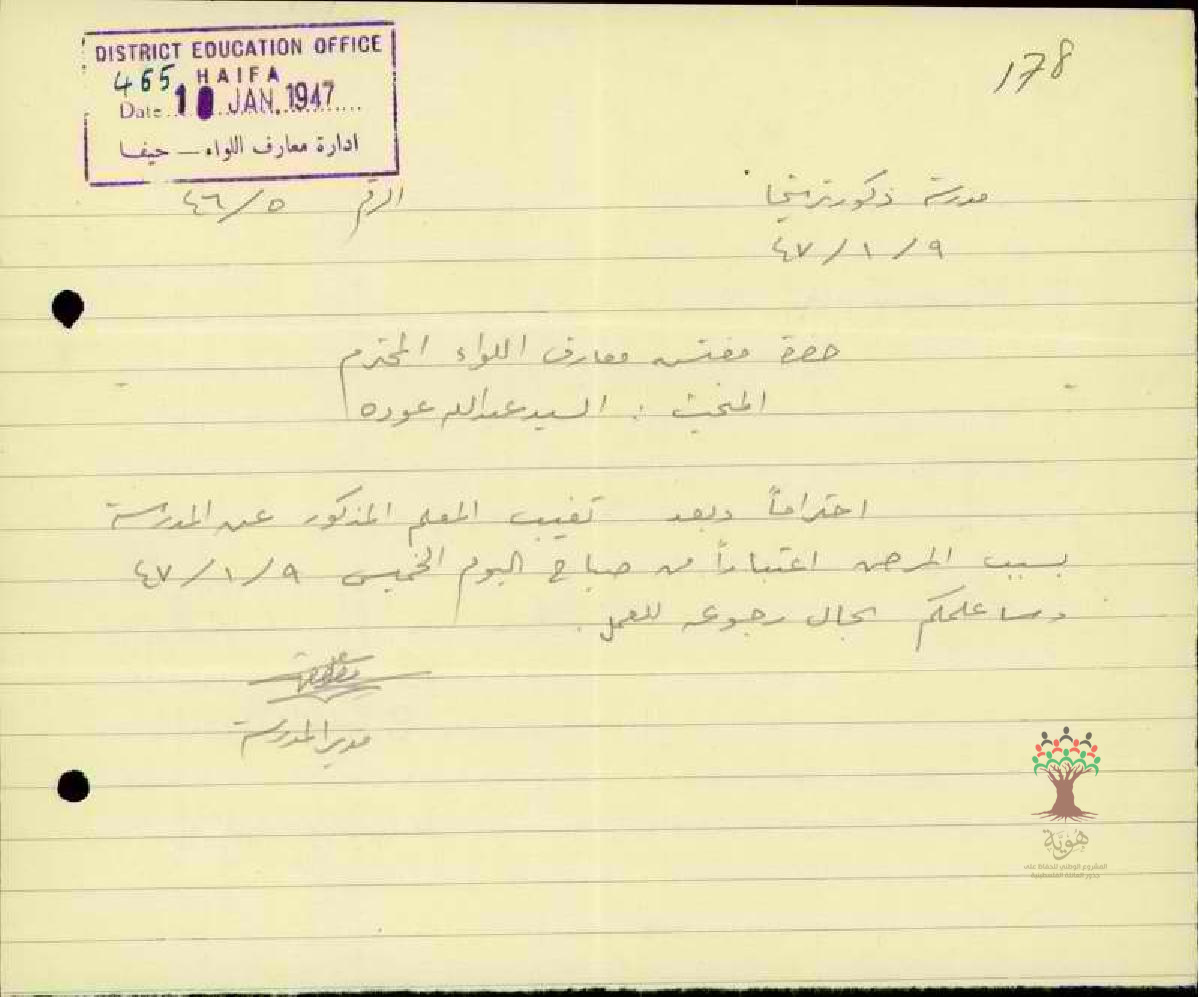 DISTRICT EDUCATION OFFICE
465 HAIFA
Date 10 JAN. 1947
ادارة معارف اللواء - حيفا
178
مدرسة ذكور ترشيحا
الرقم ٤٦/٥
٤٧/١/٩
حضرة مفتش معارف اللواء المحترم
: السيد عبدالله عوده
احتراماً وبعد تغيب المعلم المذكور عن المدرسة
بسبب المرض اعتباراً من صباح اليوم الخميس ٤٧/١/٩
وساعلمكم بحال رجوعه للعمل.
مدير المدرسة
هُويَّة
المشروع الوطني للحفاظ على
جذور العائلة الفلسطينية